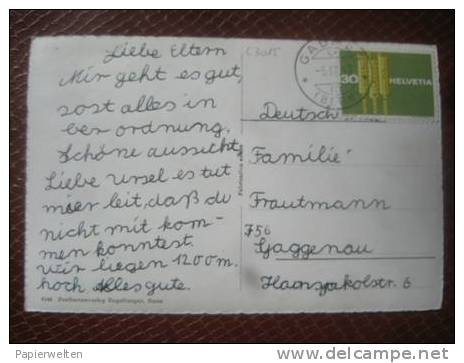 Liebe Eltern
Mir geht es gut,
sost alles in
ber ordnung.
Schöne aussicht
Liebe Ursel es tut
mier leit, daß du
nicht mit kom-
men konntest.
wir liegen 1200 m.
hoch Alles gute.
30 HELVETIA
Deutsch
Familie
Frautmann
756
Gaggenau
Hansjakobstr. 6
Papierwelten
www.delcampe.net